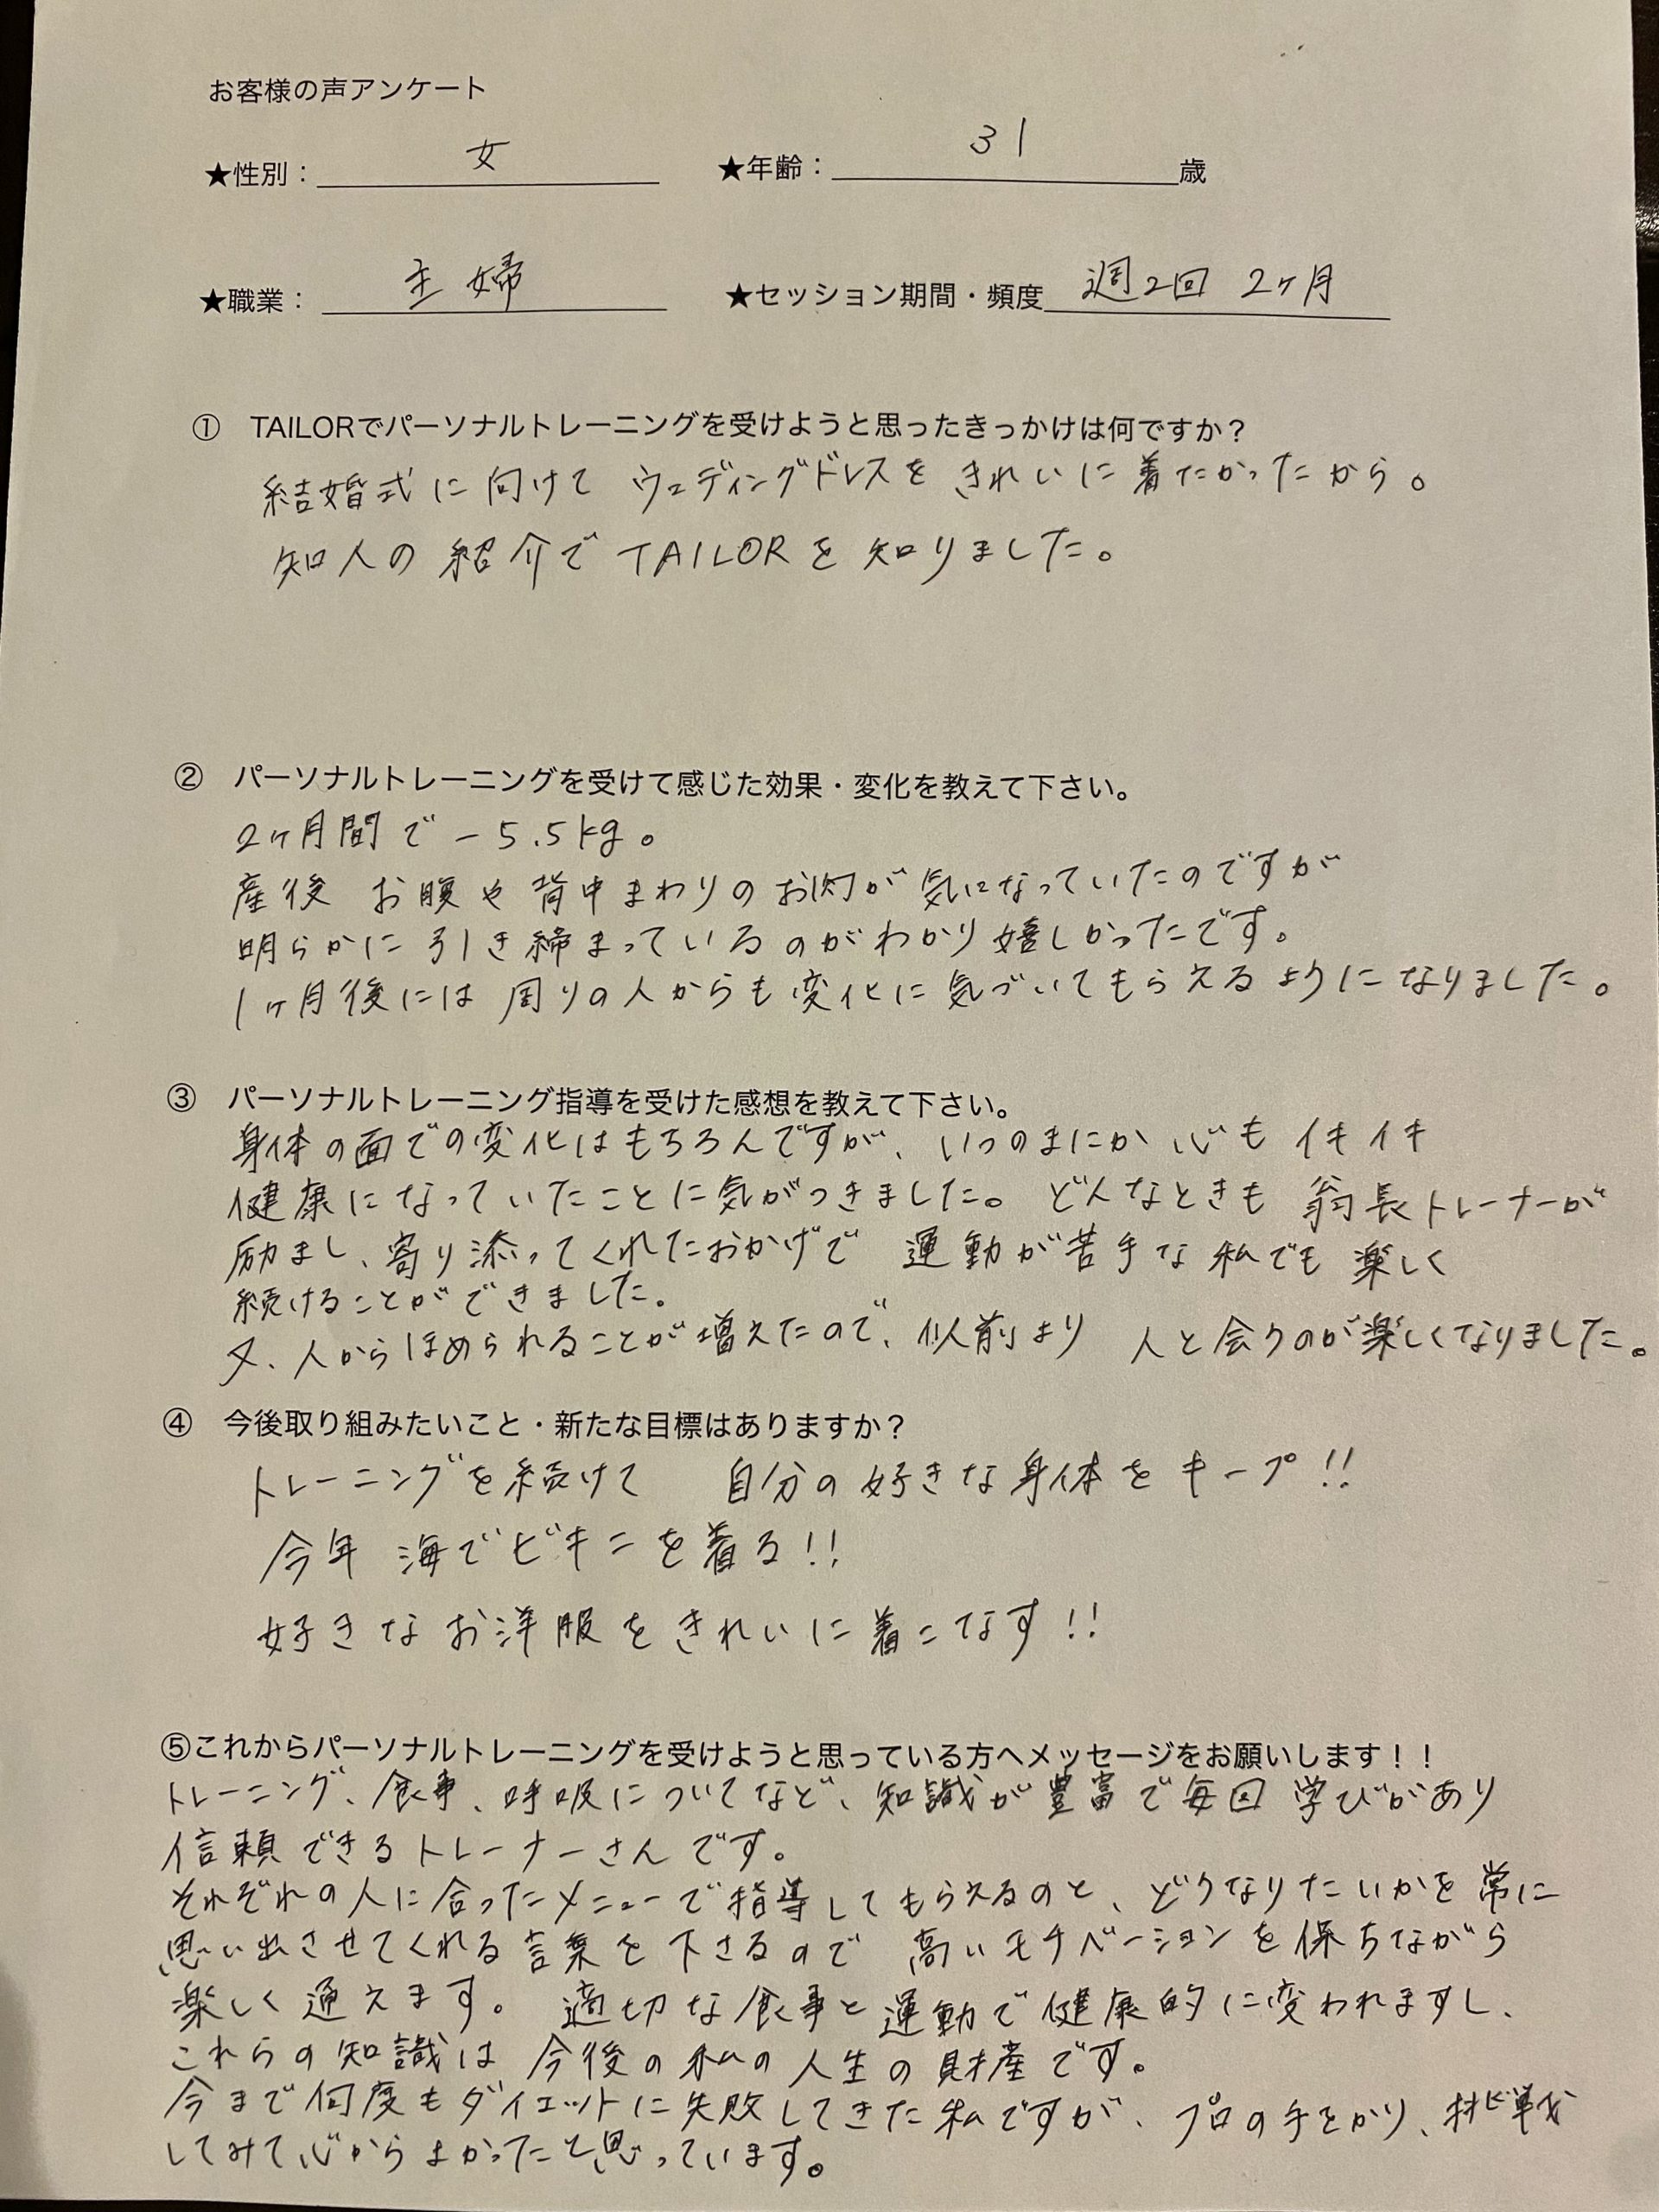 お客様の声アンケート
★性別： 女 ★年齢： 31 歳
★職業： 主婦 ★セッション期間・頻度 週2回 2ヶ月
① TAILORでパーソナルトレーニングを受けようと思ったきっかけは何ですか？
結婚式に向けて ウェディングドレスを きれいに着たかったから。
知人の紹介で TAILORを知りました。
② パーソナルトレーニングを受けて感じた効果・変化を教えて下さい。
2ヶ月間で－5.5kg。
産後 お腹や背中まわりのお肉が気になっていたのですが
明らかに引き締まっているのがわかり嬉しかったです。
1ヶ月後には周りの人からも変化に気づいてもらえるようになりました。
③ パーソナルトレーニング指導を受けた感想を教えて下さい。
身体の面での変化はもちろんですが、いつのまにか心もイキイキ
健康になっていたことに気がつきました。どんなときも 翁長トレーナーが
励まし、寄り添ってくれたおかげで 運動が苦手な私でも楽しく
続けることができました。
又、人からほめられることが増えたので、以前より 人と会うのが楽しくなりました。
④ 今後取り組みたいこと・新たな目標はありますか？
トレーニングを続けて 自分の好きな身体をキープ!!
今年 海でビキニを着る!!
好きなお洋服をきれいに着こなす!!
⑤これからパーソナルトレーニングを受けようと思っている方へメッセージをお願いします！！
トレーニング、食事、呼吸についてなど、知識が豊富で毎回 学びがあり
信頼できるトレーナーさんです。
それぞれの人に合ったメニューで指導してもらえるのと、どうなりたいかを常に
思い出させてくれる言葉を下さるので 高いモチベーションを保ちながら
楽しく通えます。 適切な食事と運動で健康的に変われますし、
これらの知識は 今後の私の人生の財産です。
今まで何度もダイエットに失敗してきた私ですが、プロの手をかり、挑戦
してみて心からよかったと思っています。